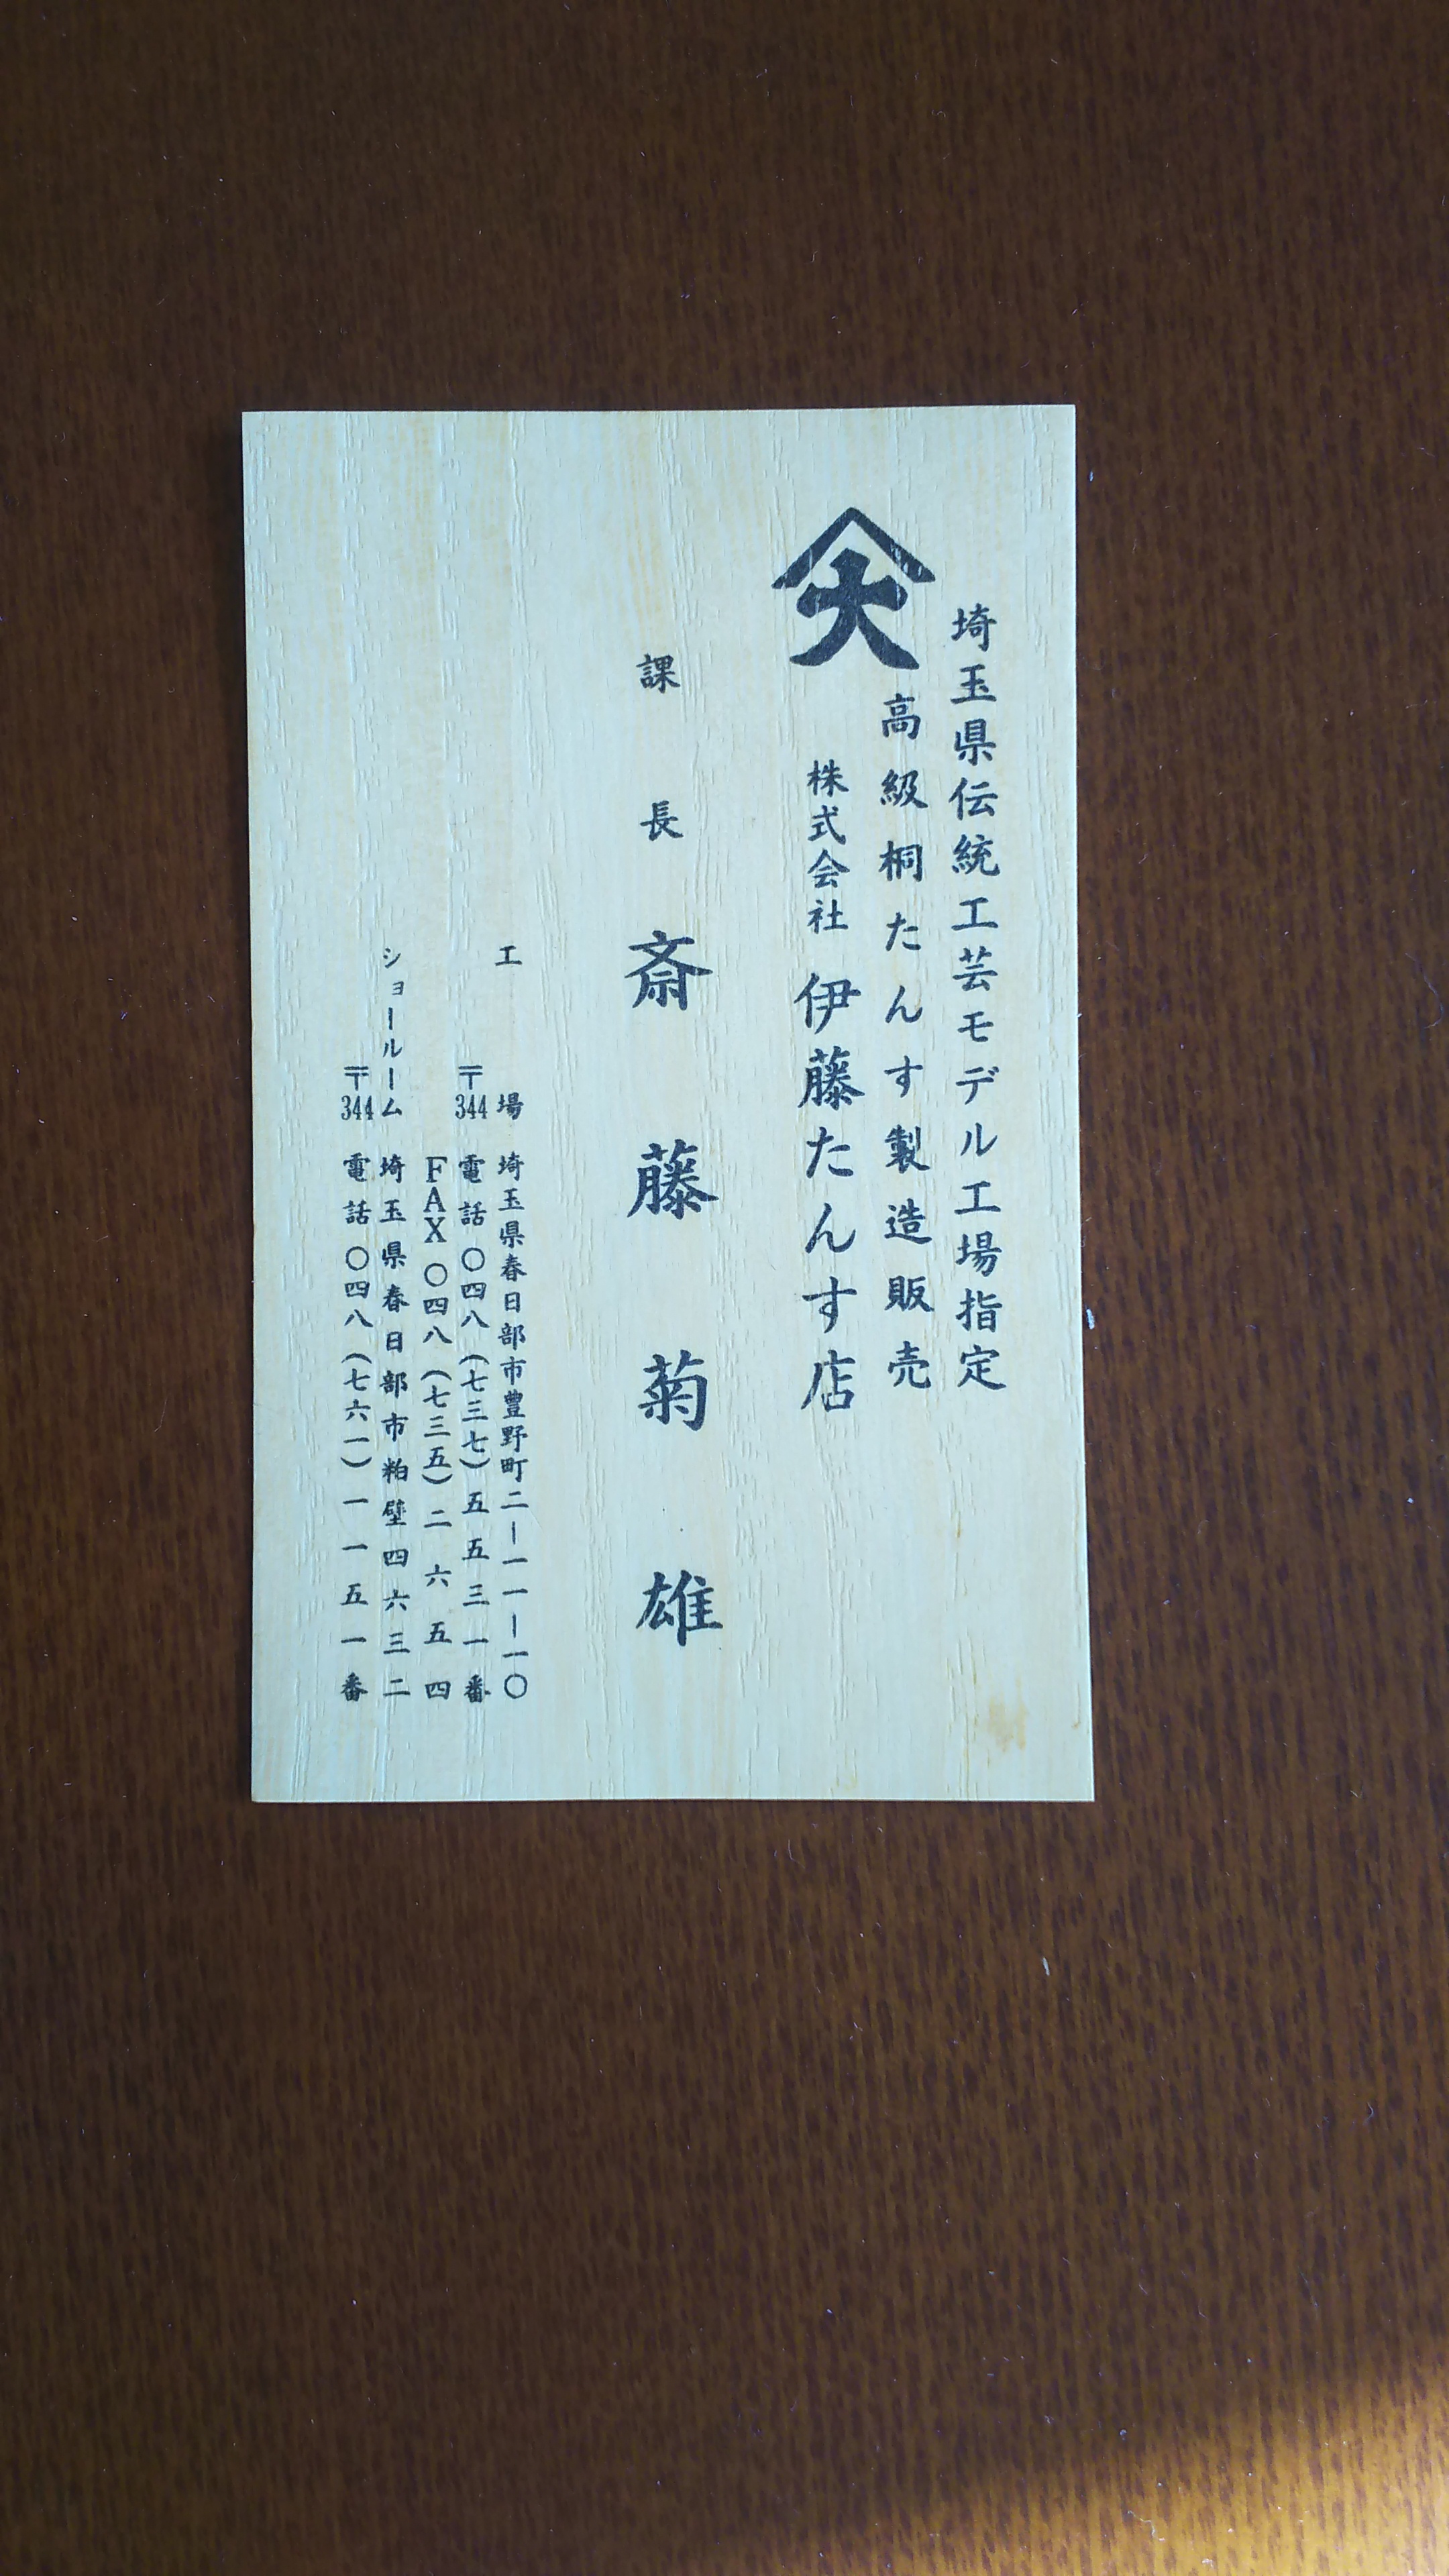 埼玉県伝統工芸モデル工場指定
高級桐たんす製造販売
大
株式会社 伊藤たんす店
課長 斎藤菊雄
工場 埼玉県春日部市豊野町二ー一一ー一〇
〒344 電話〇四八(七三七)五五三一番
FAX〇四八(七三五)二六五四
ショールーム 埼玉県春日部市粕壁四六三二
〒344 電話〇四八(七六一)一一五一番